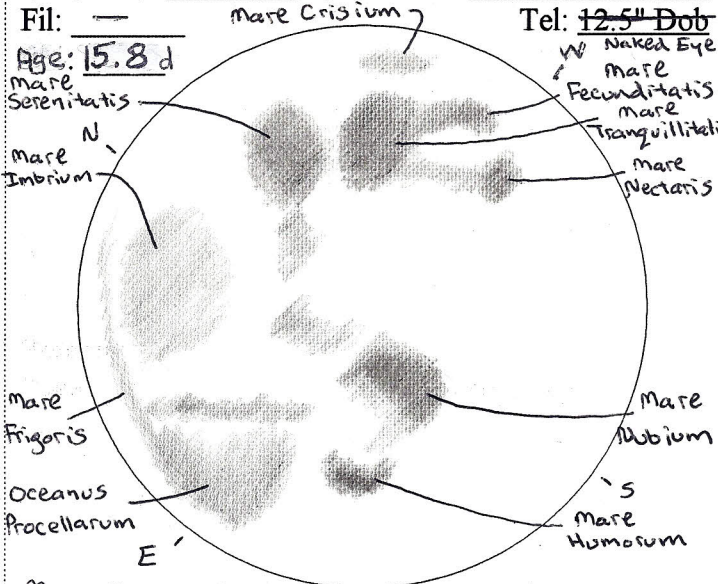 Fil: —
Mare Crisium
Tel: 12.5" Dob
Age: 15.8 d
W
Naked Eye
Mare
Serenitatis
Mare
Fecunditatis
Mare
Tranquillitati
N
Mare
Imbrium
Mare
Nectaris
Mare
Frigoris
Mare
Nubium
Oceanus
Procellarum
S
Mare
Humorum
E